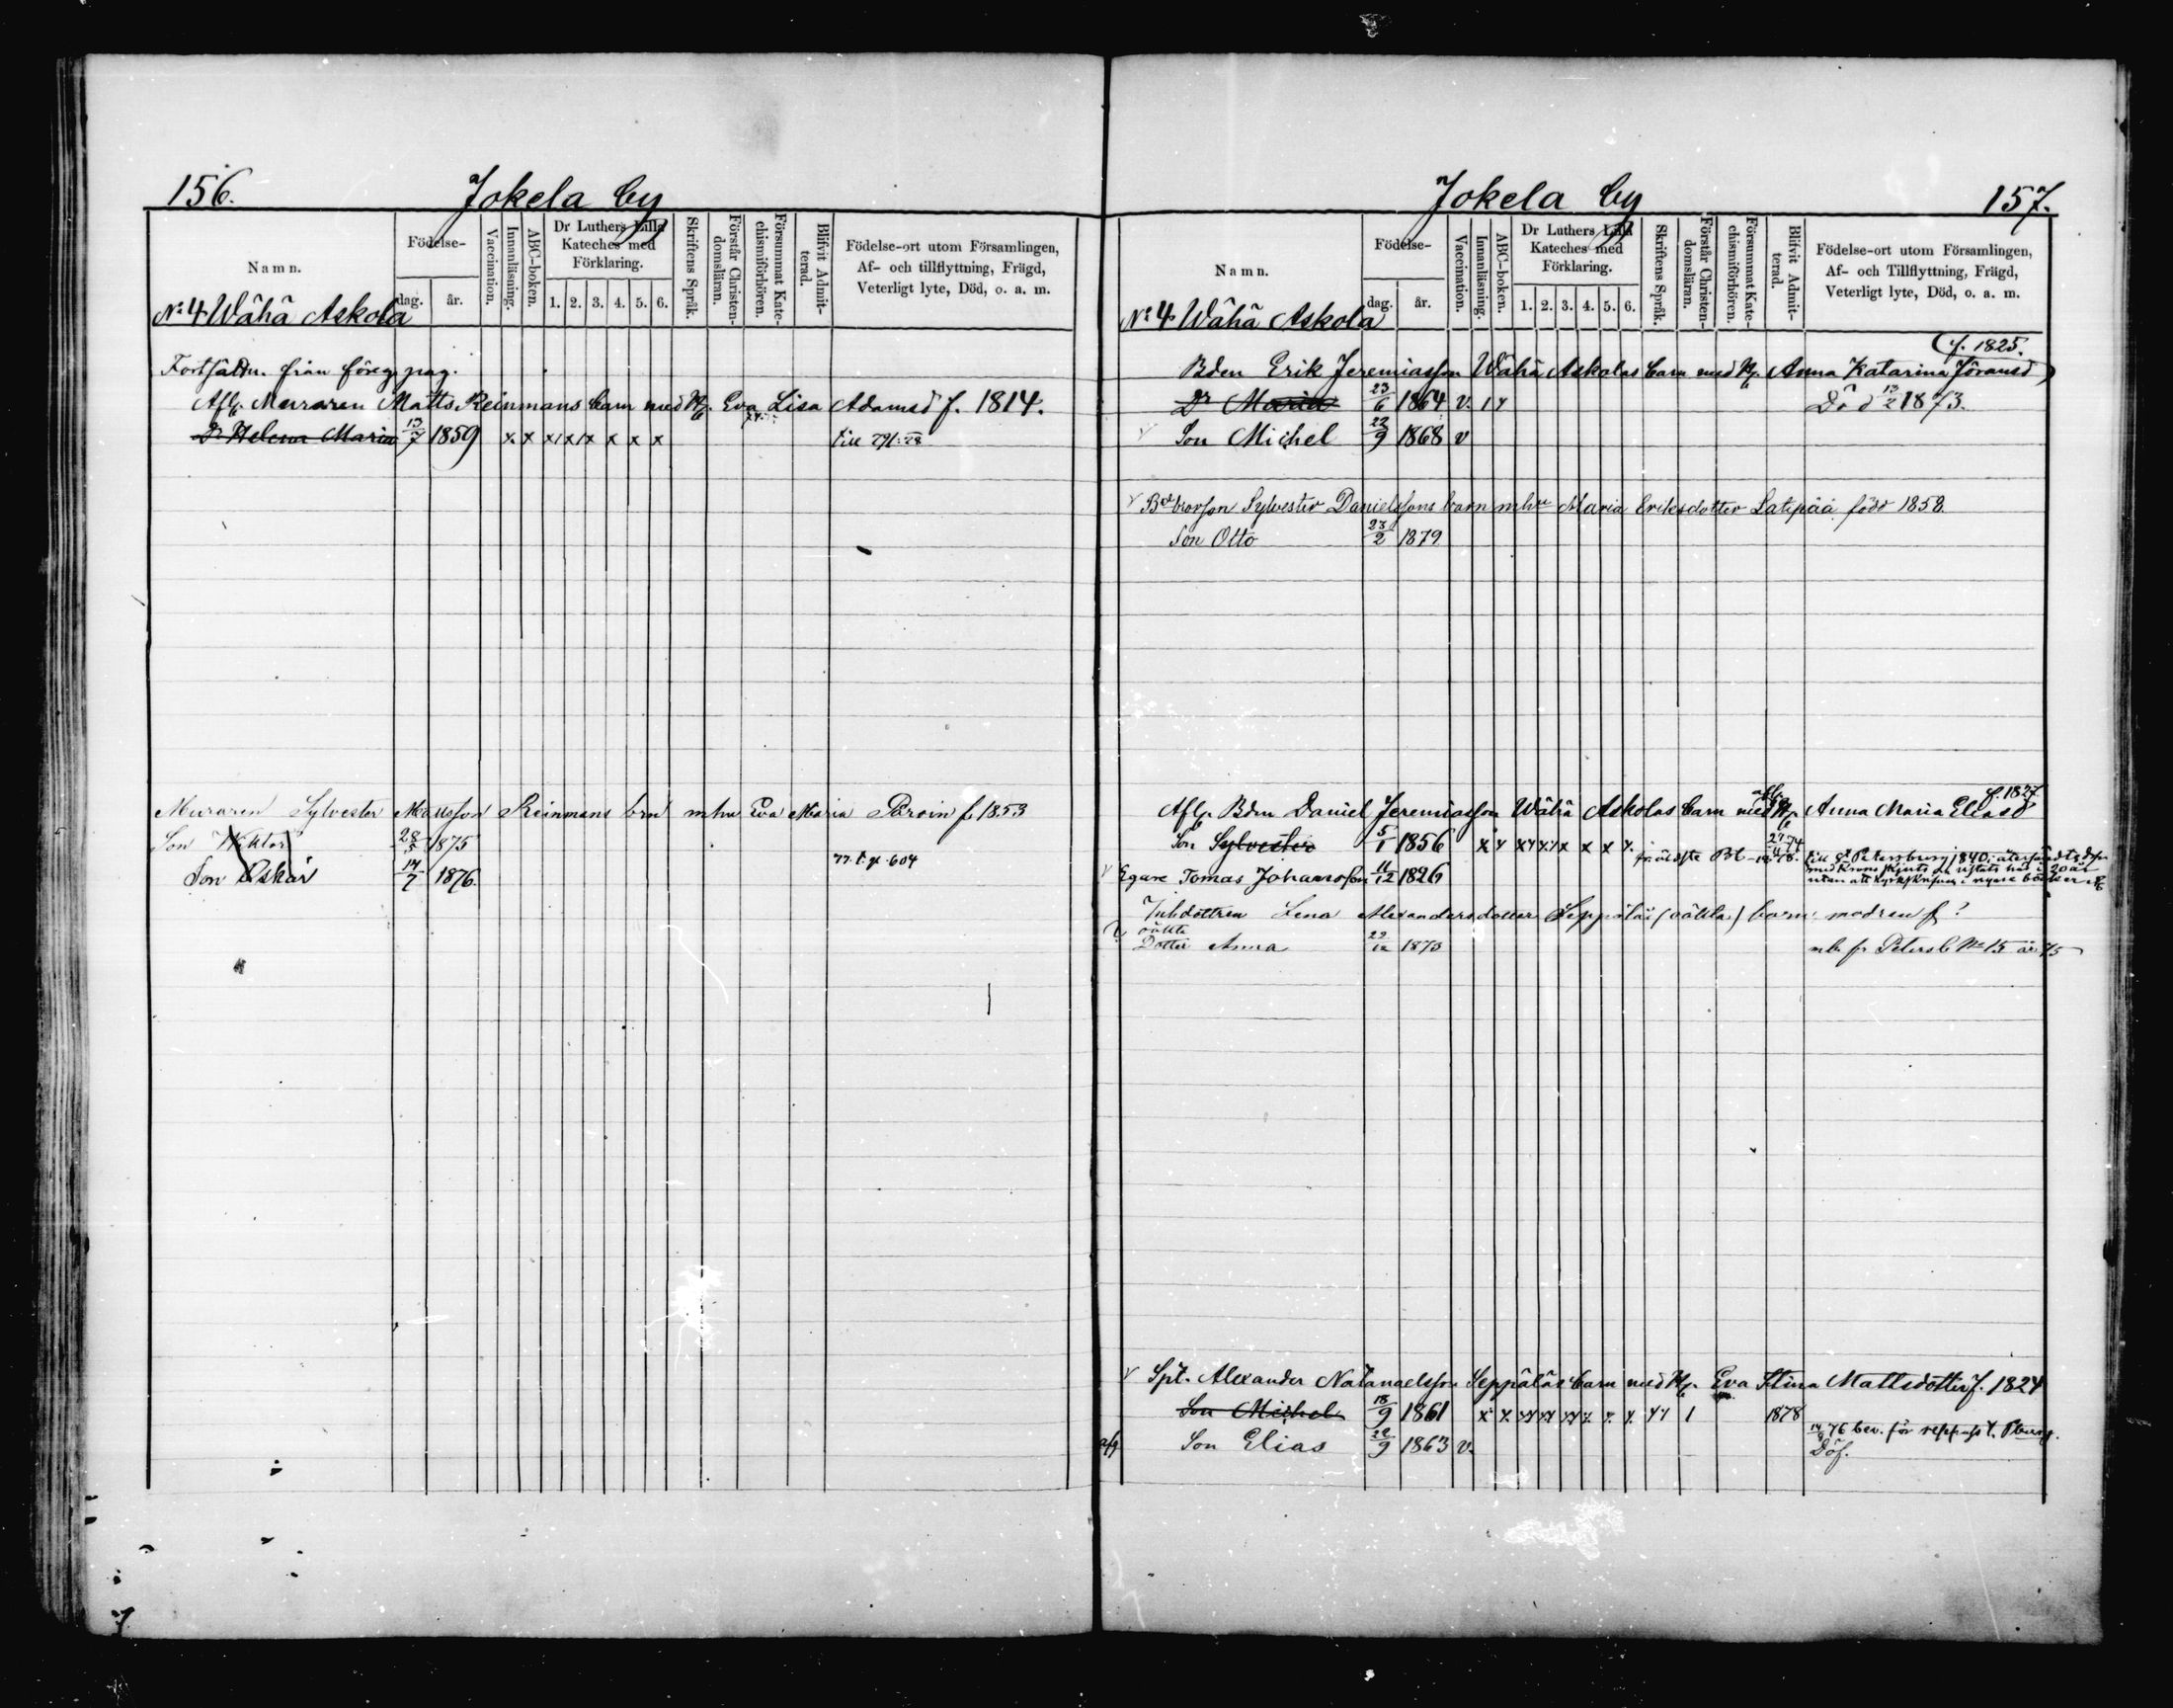 156.
Jokela by
Namn.
Födelse-
dag.
år.
Vaccination.
Innanläsning.
ABC-boken.
Dr Luthers Lilla Kateches med Förklaring.
1. 2. 3. 4. 5. 6.
Skriftens Språk.
Förstår Christendomsläran.
Försummat Katechismiförhören.
Blifvit Admitterad.
Födelse-ort utom Församlingen,
Af- och tillflyttning, Frägd,
Veterligt lyte, Död, o. a. m.
No 4 Wähä Askola
Fortsättn. från föreg. pag.
Afl. Muraren Matts Reinmans barn med H. Eva Lisa Adamsd f. 1814.
Dr Helena Maria 13/7 1859 x x x1 x1 x x x x till 291:28
Muraren Sylvester Mattsson Reinmans brn mhu Eva Maria Parvin f. 1853
Son Viktor 28/3 1875
77. t. p. 604
Son Oskar 14/7 1876
Jokela by
157.
Namn.
Födelse-
dag.
år.
Vaccination.
Innanläsning.
ABC-boken.
Dr Luthers Lilla Kateches med Förklaring.
1. 2. 3. 4. 5. 6.
Skriftens Språk.
Förstår Christendomsläran.
Försummat Katechismiförhören.
Blifvit Admitterad.
Födelse-ort utom Församlingen,
Af- och Tillflyttning, Frägd,
Veterligt lyte, Död, o. a. m.
No 4 Wähä Askola
(f. 1825.
Bden Erik Jeremiasson Wähä Askolas barn med H. Anna Katarina Göransd)
Dr Maria 23/6 1864 v. Död 13/2 1873.
v Son Michel 22/9 1868 v
v Bdbrorson Sylvester Danielssons barn mhu Maria Eriksdotter Latipää född 1858
Son Otto 23/2 1879
f. 1827
Afl. Bdn Daniel Jeremiasson Wähä Askolas barn med afl. H. Anna Maria Eliasd
Son Sylvester 5/1 1856
v Egare Tomas Johansson 11/12 1826
till St Petersburg 1840,
Inhdottren Lena Alexandersdotter Seppälä (oäkta) barn: modren f?
oäkta
Dotter Anna 29/12 1873 mb. fr Petersb No 15 år 75
v Spt. Alexander Natanaelsson Seppäläs barn med H. Eva Stina Mattsdotter f. 1824
Son Michel 18/9 1861 1878
14/9 76 bev. för
afg Son Elias 22/9 1863 v. Döf.